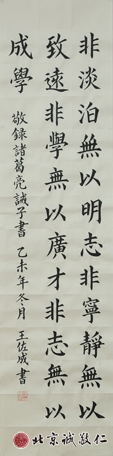 非淡泊無以明志非寧靜無以
致遠非學無以廣才非志無以
成學
敬録諸葛亮誡子書 乙未年冬月 王佐成書
北京诚敬仁